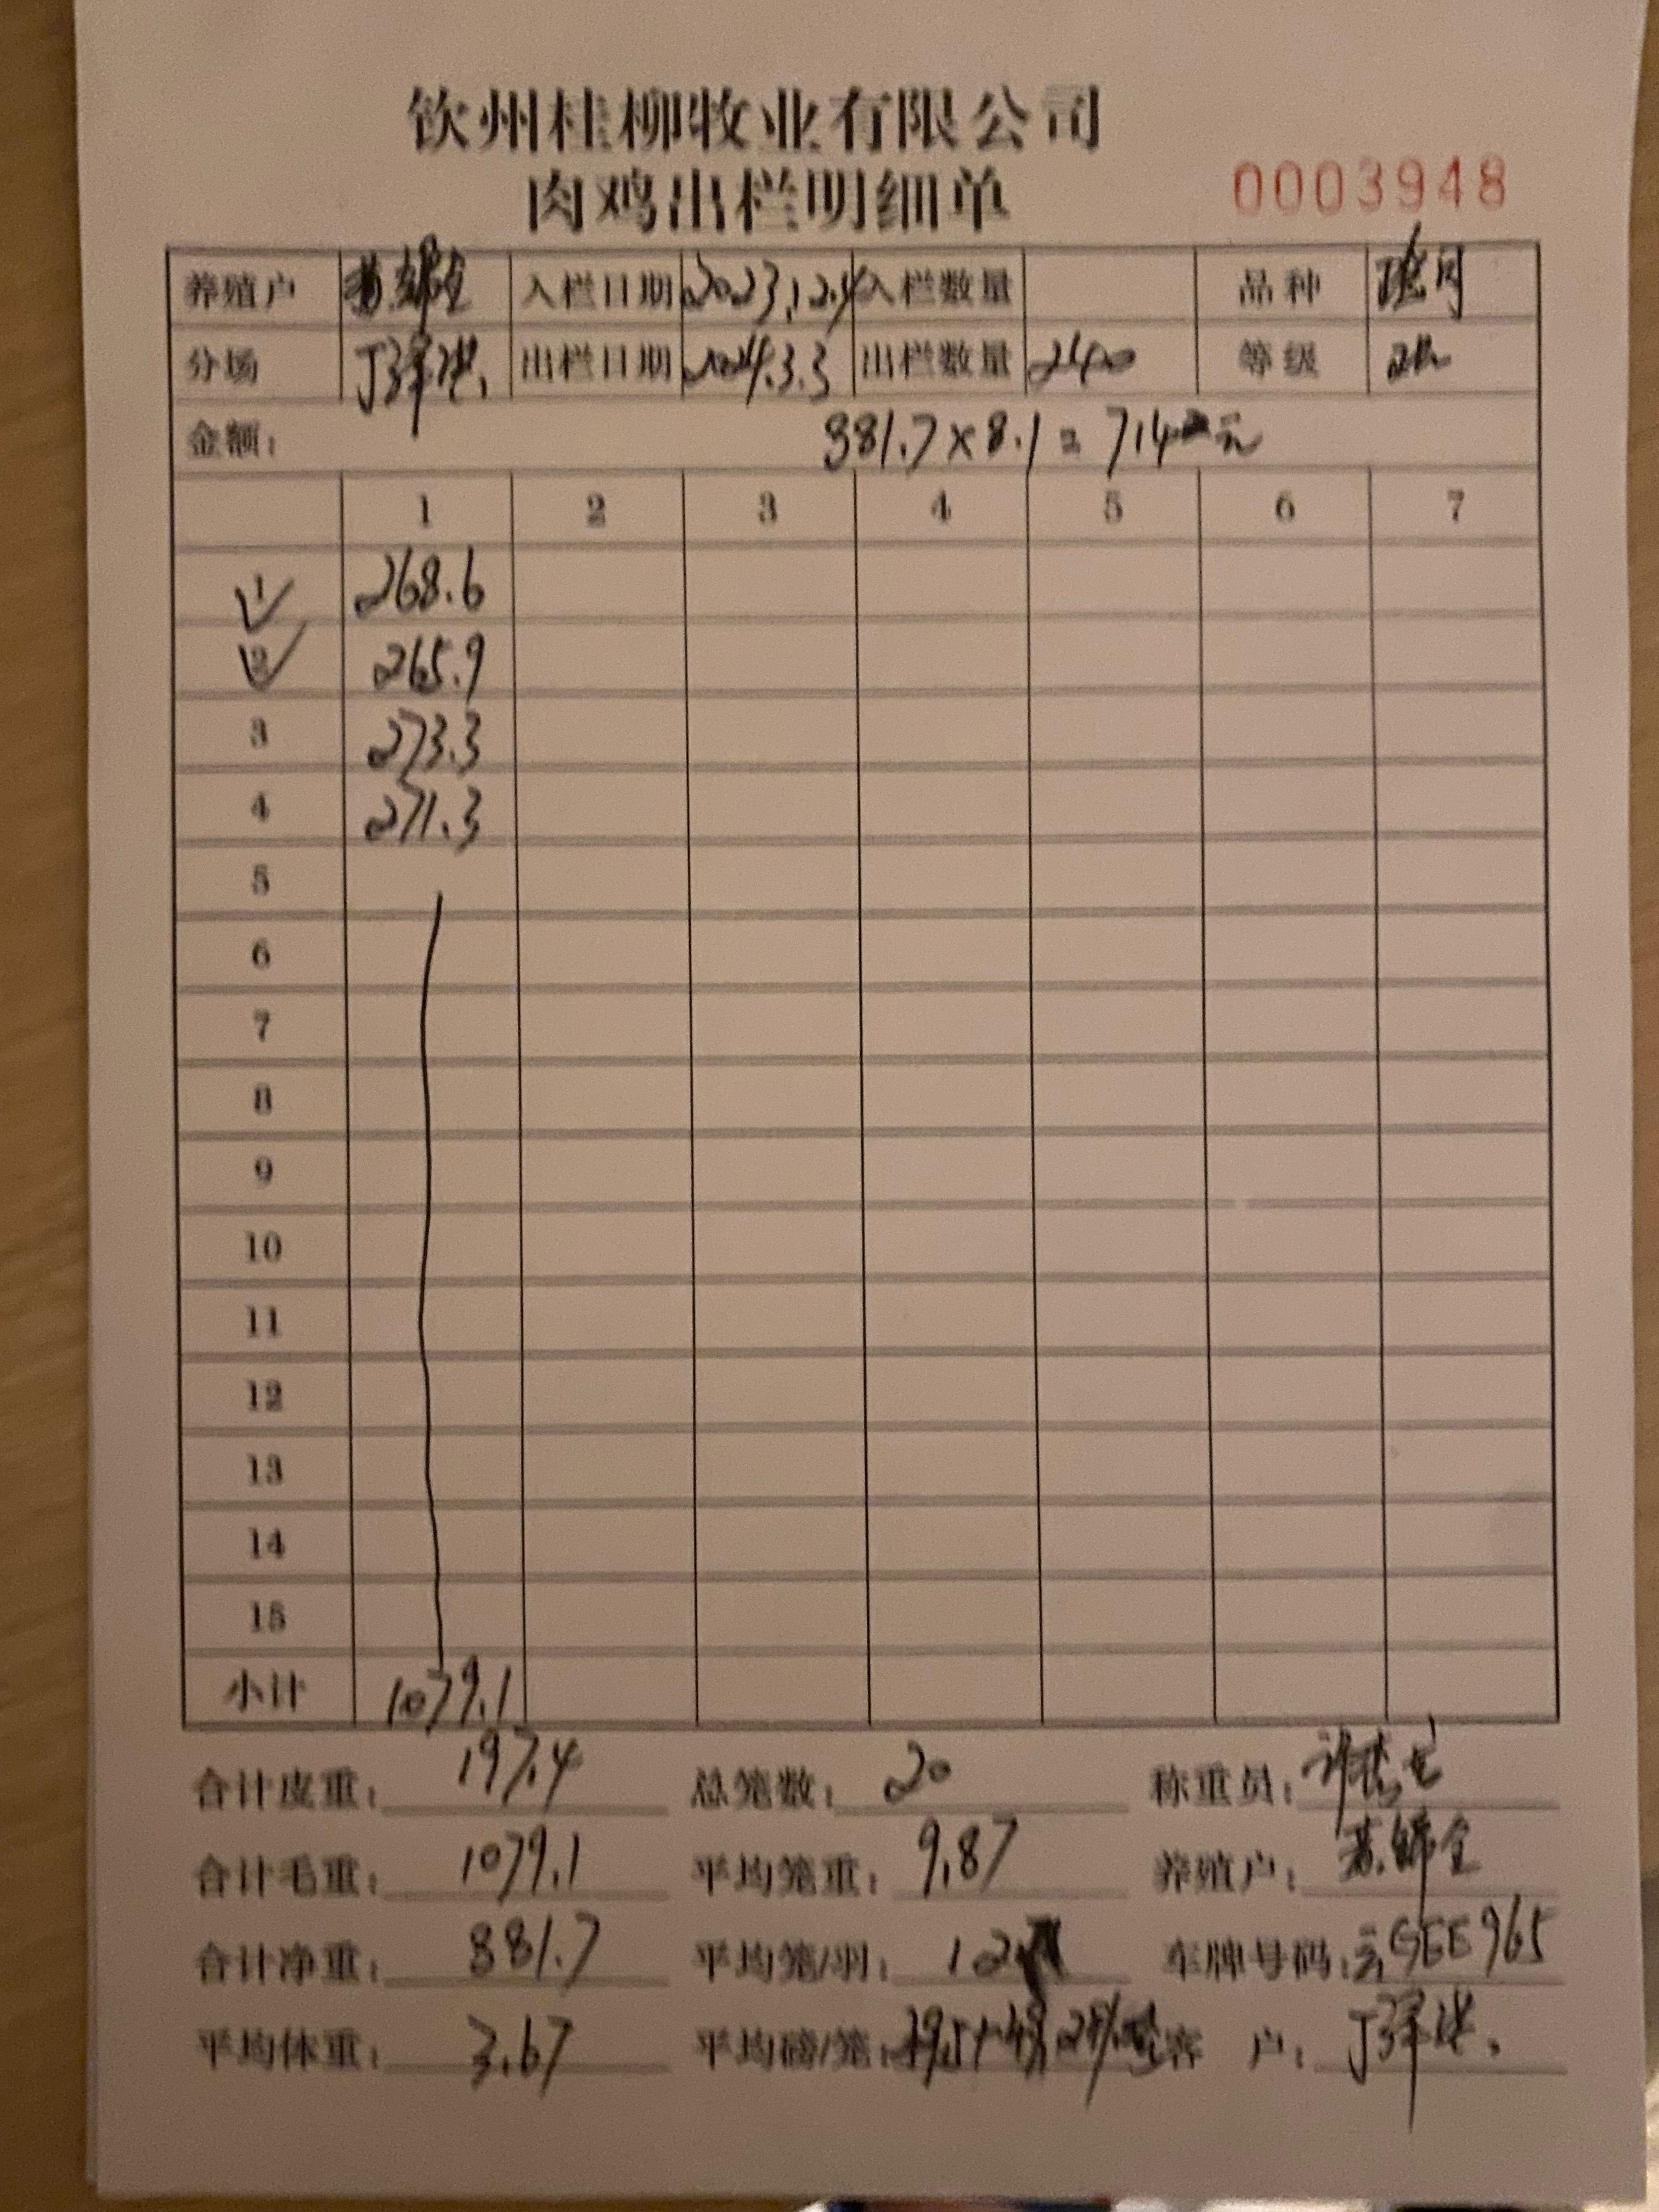 钦州桂柳牧业有限公司
肉鸡出栏明细单 0003948
养殖户 入栏日期 2023.12.4 入栏数量 品种
分场 丁泽洪. 出栏日期 2024.3.3 出栏数量 240 等级
金额: 881.7×8.1=714 元
1 2 3 4 5 6 7
1 268.6
2 265.9
3 273.3
4 271.3
5
6
7
8
9
10
11
12
13
14
15
小计 1079.1
合计皮重: 197.4 总笼数: 20 称重员:
合计毛重: 1079.1 平均笼重: 9.87 养殖户:
合计净重: 881.7 平均笼/羽: 12 车牌号码: 云GEE965
平均体重: 3.67 平均磅/笼: 客 户: 丁泽洪.